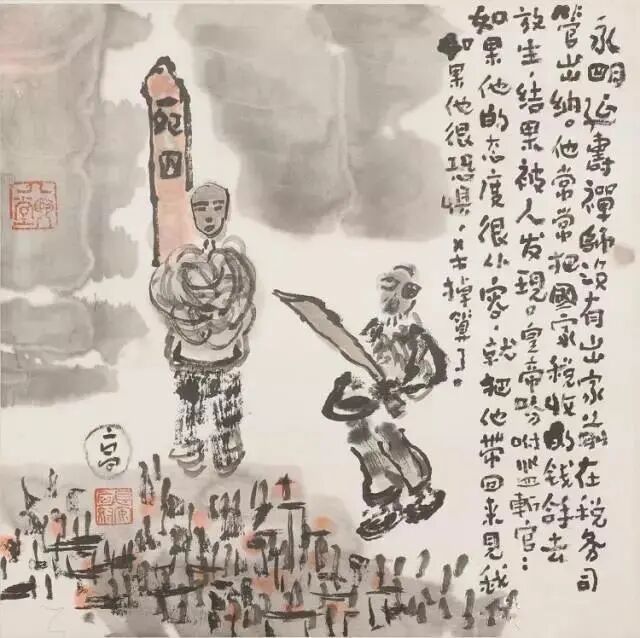 永明延壽禪師没有出家前在税务司
管出纳。他常常把國家税收的钱拿去
放生,结果被人发现。皇帝吩咐监斬官:
如果他的态度很从容,就把他带回来见我
如果他很恐惧,杀掉算了。
死囚